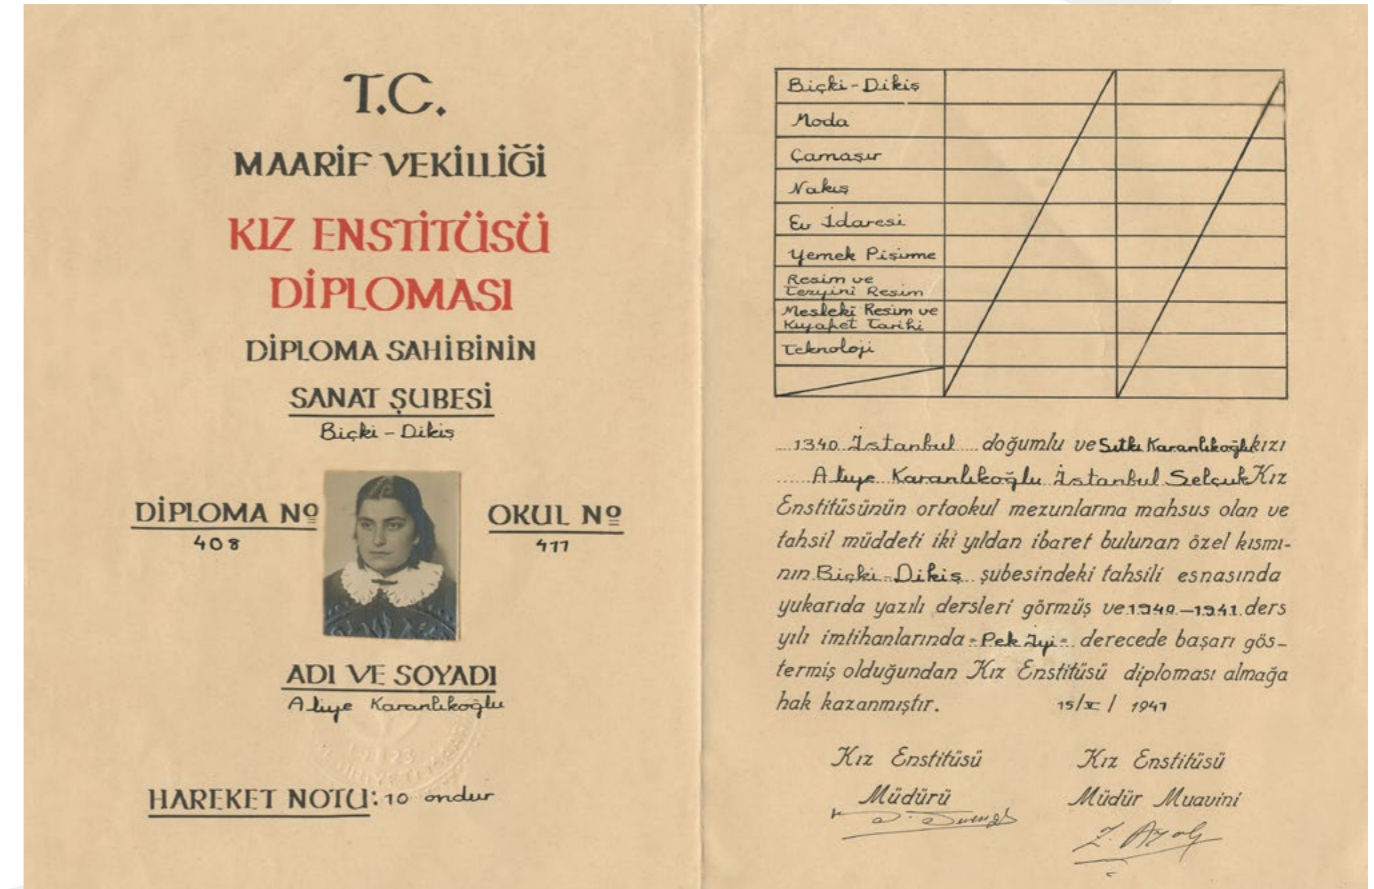 T.C.
MAARİF VEKİLLİĞİ
KIZ ENSTİTÜSÜ
DİPLOMASI
DİPLOMA SAHİBİNİN
SANAT ŞUBESİ
Biçki - Dikiş
DİPLOMA Nº
408
OKUL Nº
411
ADI VE SOYADI
Aliye Karanlıkoğlu
HAREKET NOTU: 10 ondur
Biçki - Dikiş
Moda
Çamaşır
Nakış
Ev İdaresi
Yemek Pişirme
Resim ve
Tezyini Resim
Mesleki Resim ve
Kıyafet Tarihi
Teknoloji
1340 İstanbul doğumlu ve Sıtkı Karanlıkoğlu kızı
Aliye Karanlıkoğlu İstanbul Selçuk Kız
Enstitüsünün ortaokul mezunlarına mahsus olan ve
tahsil müddeti iki yıldan ibaret bulunan özel kısmı-
nın Biçki-Dikiş şubesindeki tahsili esnasında
yukarıda yazılı dersleri görmüş ve 1940-1941 ders
yılı imtihanlarında - Pek İyi - derecede başarı gös-
termiş olduğundan Kız Enstitüsü diploması almağa
hak kazanmıştır. 15/ / 1941
Kız Enstitüsü
Müdürü
Kız Enstitüsü
Müdür Muavini